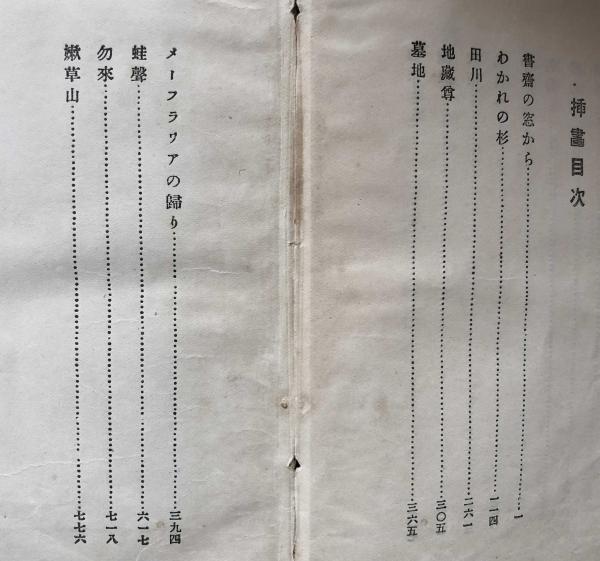 挿畫目次
書齋の窓から……一
わかれの杉……一一四
田川……二六一
地藏尊……三〇五
墓地……三六五
メーフラワアの歸り……三九四
蛙聲……六一七
勿來……七一八
嫩草山……七七六